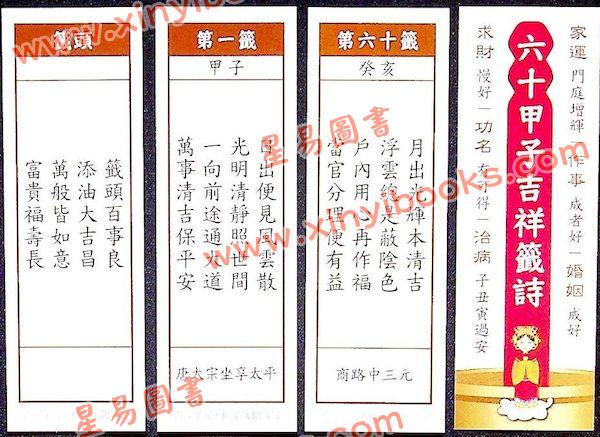 籤頭
籤頭百事良
添油大吉昌
萬般皆如意
富貴福壽長
第一籤
甲子
日出便見風雲散
光明清靜照世間
一向前途通大道
萬事清吉保平安
唐太宗坐享太平
第六十籤
癸亥
月出光輝本清吉
浮雲總是蔽陰色
戶內用心再作福
當官分理便有益
商路中三元
家運 門庭增輝 作事 成者好—婚姻 成好
六十甲子吉祥籤詩
求財 慢好—功名 有可得—治病 子丑寅過安
星易圖書
www.xinyibooks.com
星易圖書
www.xinyibooks.com
星易圖書
www.xinyibooks.com